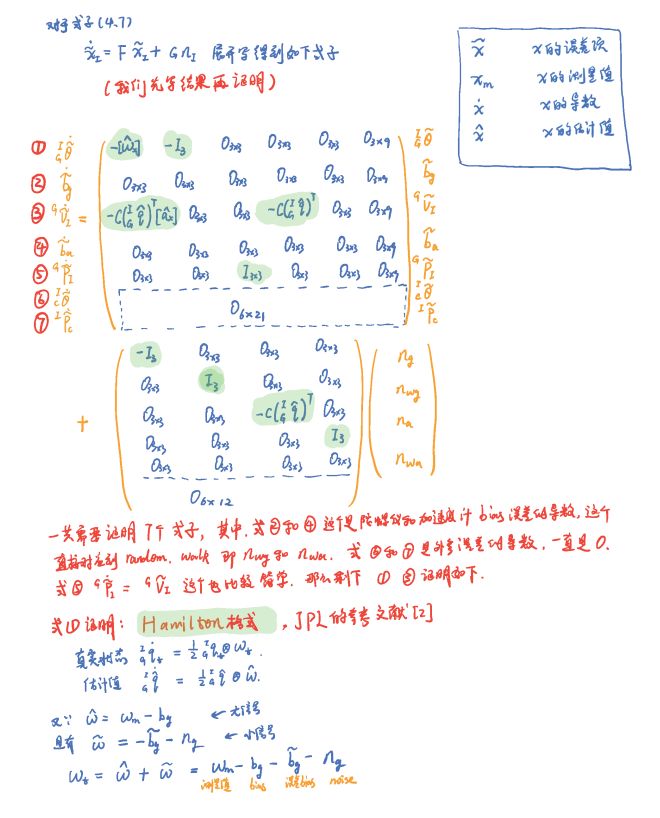 对于式子(4.7)
$\dot{\tilde{x}}_I = F\tilde{x}_I + G n_I$ 展开写得到如下式子
(我们先写结果再证明)
$\tilde{x}$ x的误差项
$x_m$ x的测量值
$\dot{x}$ x的导数
$\hat{x}$ x的估计值
① ${}^I_G\dot{\tilde{\theta}}$ $-[\hat{\omega}_\times]$ $-I_3$ $0_{3\times3}$ $0_{3\times3}$ $0_{3\times3}$ $0_{3\times9}$ ${}^I_G\tilde{\theta}$
② $\dot{\tilde{b}}_g$ $0_{3\times3}$ $0_{3\times3}$ $0_{3\times3}$ $0_{3\times3}$ $0_{3\times3}$ $0_{3\times9}$ $\tilde{b}_g$
③ ${}^G\dot{\tilde{v}}_I$ = $-C({}^I_G\hat{q})^T[\hat{a}_\times]$ $0_{3\times3}$ $0_{3\times3}$ $-C({}^I_G\hat{q})^T$ $0_{3\times3}$ $0_{3\times9}$ ${}^G\tilde{v}_I$
④ $\dot{\tilde{b}}_a$ $0_{3\times3}$ $0_{3\times3}$ $0_{3\times3}$ $0_{3\times3}$ $0_{3\times3}$ $0_{3\times9}$ $\tilde{b}_a$
⑤ ${}^G\dot{\tilde{p}}_I$ $0_{3\times3}$ $0_{3\times3}$ $I_{3\times3}$ $0_{3\times3}$ $0_{3\times3}$ $0_{3\times9}$ ${}^G\tilde{p}_I$
⑥ ${}^I_C\dot{\tilde{\theta}}$ ${}^I_C\tilde{\theta}$
⑦ ${}^I\dot{\tilde{p}}_C$ $0_{6\times21}$ ${}^I\tilde{p}_C$
$-I_3$ $0_{3\times3}$ $0_{3\times3}$ $0_{3\times3}$ $n_g$
$0_{3\times3}$ $I_3$ $0_{3\times3}$ $0_{3\times3}$ $n_{wg}$
+ $0_{3\times3}$ $0_{3\times3}$ $-C({}^I_G\hat{q})^T$ $0_{3\times3}$ $n_a$
$0_{3\times3}$ $0_{3\times3}$ $0_{3\times3}$ $I_3$ $n_{wa}$
$0_{3\times3}$ $0_{3\times3}$ $0_{3\times3}$ $0_{3\times3}$
$0_{6\times12}$
一共需要证明7个式子,其中,式②和④这个是陀螺仪和加速度计bias误差的导数,这个
直接对应到random walk 即 $n_{wg}$ 和 $n_{wa}$. 式⑥和⑦是外参误差的导数,一直是0.
式⑤ ${}^G\dot{\tilde{p}}_I = {}^G\tilde{v}_I$ 这个也比较简单. 那么剩下 ① ③ 证明如下.
式①证明: Hamilton格式, JPL的参考文献[2]
真实状态 ${}^I_G\dot{q}_t = \frac{1}{2}{}^I_G q_t \otimes \omega_t$.
估计值 ${}^I_G\dot{\hat{q}} = \frac{1}{2}{}^I_G\hat{q} \otimes \hat{\omega}$.
又∵ $\hat{\omega} = \omega_m - b_g$ ← 大信号
且有 $\tilde{\omega} = -\tilde{b}_g - n_g$ ← 小信号
$\omega_t = \hat{\omega} + \tilde{\omega} = \omega_m - b_g - \tilde{b}_g - n_g$
测量值 bias 误差bias noise